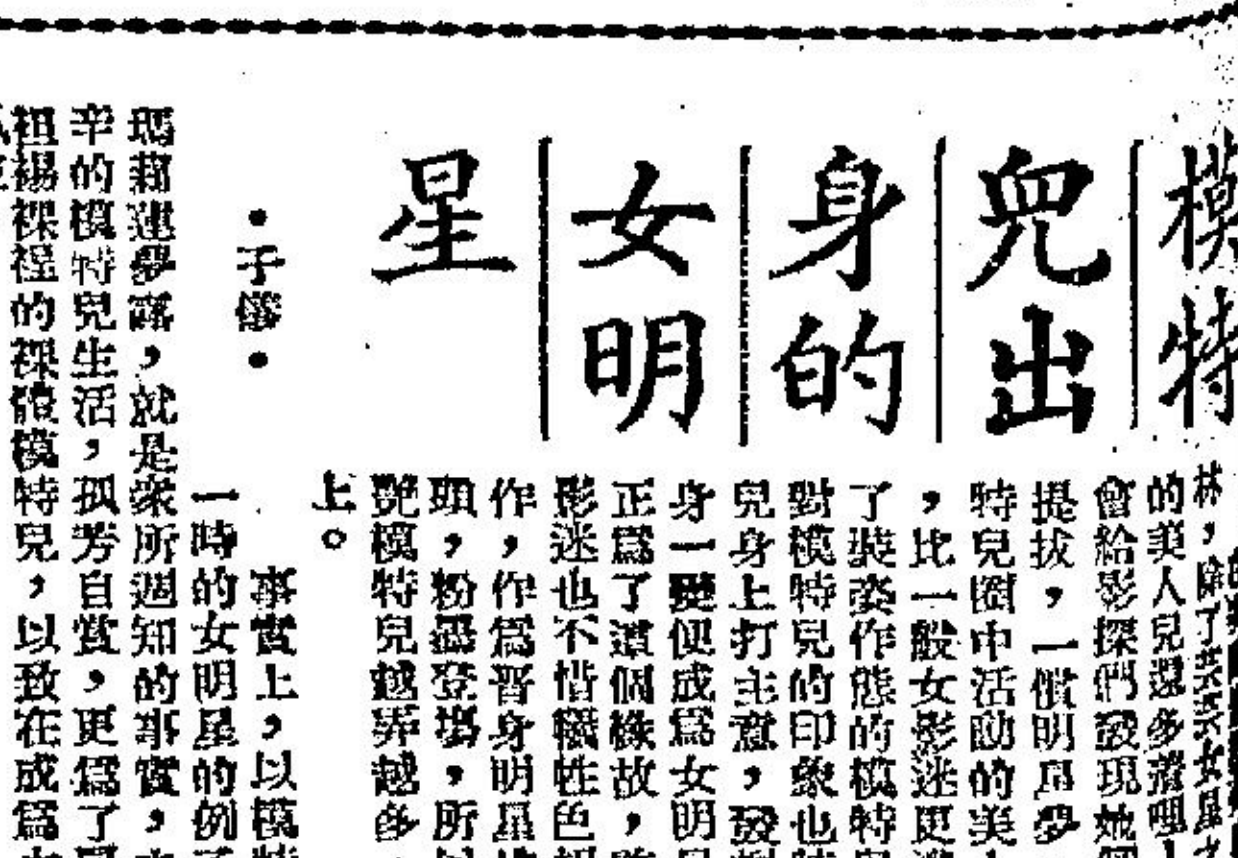 模特
兒出
身的
女明
星
•子儀•
林，除了
的美人兒還多着哩
會給影探們發現她
提拔，一償明星夢
特兒圈中活動的美
，比一般女影迷更
了裝姿作態的模特
對模特兒的印象也
兒身上打主意，發
身一變便成爲女明
正爲了這個緣故，
影迷也不惜犧牲色
作，作爲晋身明星
頭，粉墨登場，所
艷模特兒越弄越多
上。
事實上，以模
一時的女明星的例
瑪莉蓮夢露，就是衆所週知的事實，
辛的模特兒生活，孤芳自賞，更爲了
袒裼裸裎的裸體模特兒，以致在成爲